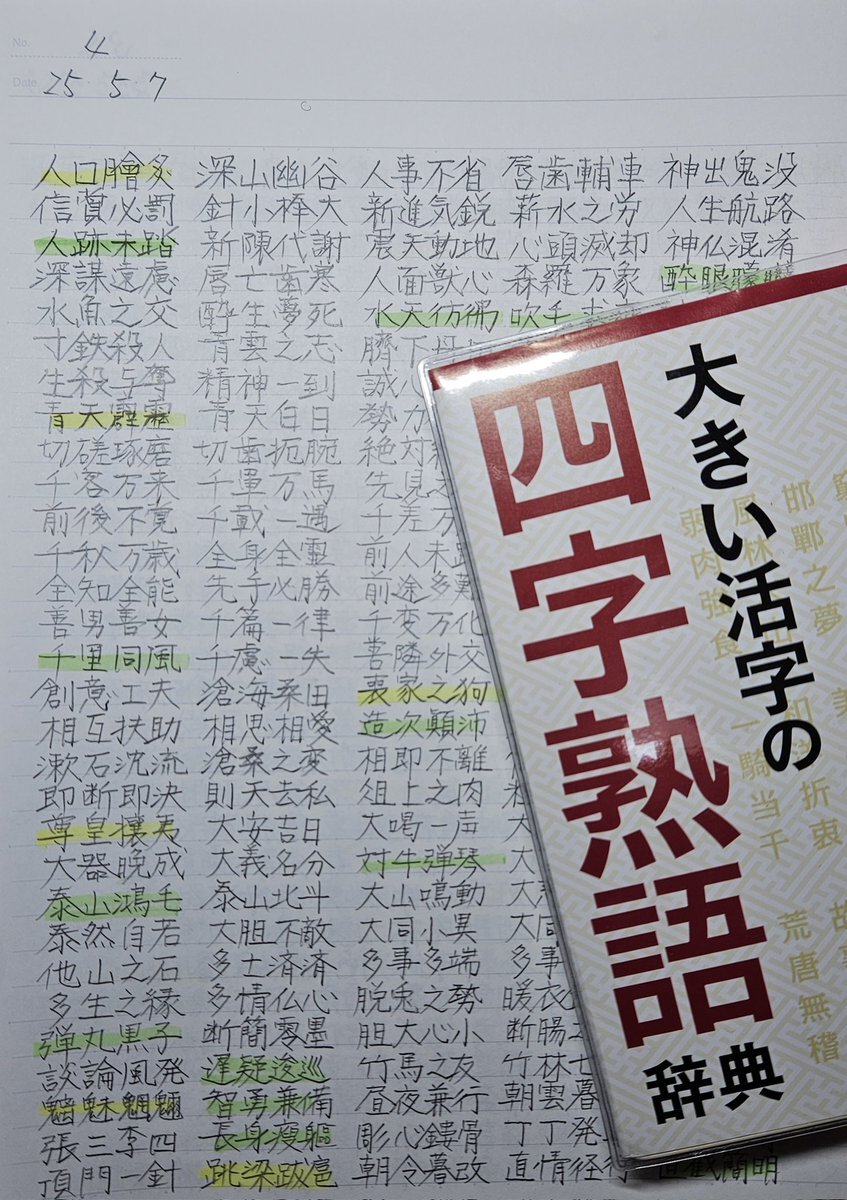 No. 4
Date 25・5・7
人口膾炙 深山幽谷 人事不省 唇歯輔車 神出鬼没
信賞必罰 針小棒大 新進気鋭 薪水之労 人生航路
人跡未踏 新陳代謝 震天動地 心頭滅却 神仏混淆
深謀遠慮 唇亡歯寒 人面獣心 森羅万象 酔眼朦朧
水魚之交 酔生夢死 水天彷彿 吹毛求
寸鉄殺人 青雲之志 臍下丹
生殺与奪 精神一到 誠心
青天霹靂 青天白日 勢力
切磋琢磨 切歯扼腕 絶対
千客万来 千軍万馬 先見
前後不覚 千載一遇 千差万
千秋万歳 全身全霊 前人未踏
全知全能 先手必勝 前途多難
善男善女 千篇一律 千変万化
千里同風 千慮一失 善隣外交
創意工夫 滄海桑田 喪家之狗
相互扶助 相思相愛 造次顛沛
漱石沈流 滄桑之変 相即不離
即断即決 則天去私 俎上之肉
尊皇攘夷 大安吉日 大喝一声 大
大器晩成 大義名分 対牛弾琴
泰山鴻毛 泰山北斗 大山鳴動 大
泰然自若 大胆不敵 大同小異 大同
他山之石 多士済済 多事多端 多事
多生之縁 多情仏心 脱兎之勢 暖衣
弾丸黒子 断簡零墨 胆大心小 断腸
談論風発 遅疑逡巡 竹馬之友 竹林七
魑魅魍魎 智勇兼備 昼夜兼行 朝雲暮
張三李四 長身痩躯 彫心鏤骨 丁丁発
頂門一針 跳梁跋扈 朝令暮改 直情径行 直截簡明
大きい活字の
四字熟語
辞典
邯鄲之夢
風林
弱肉強食
折衷
一騎当千
荒唐無稽